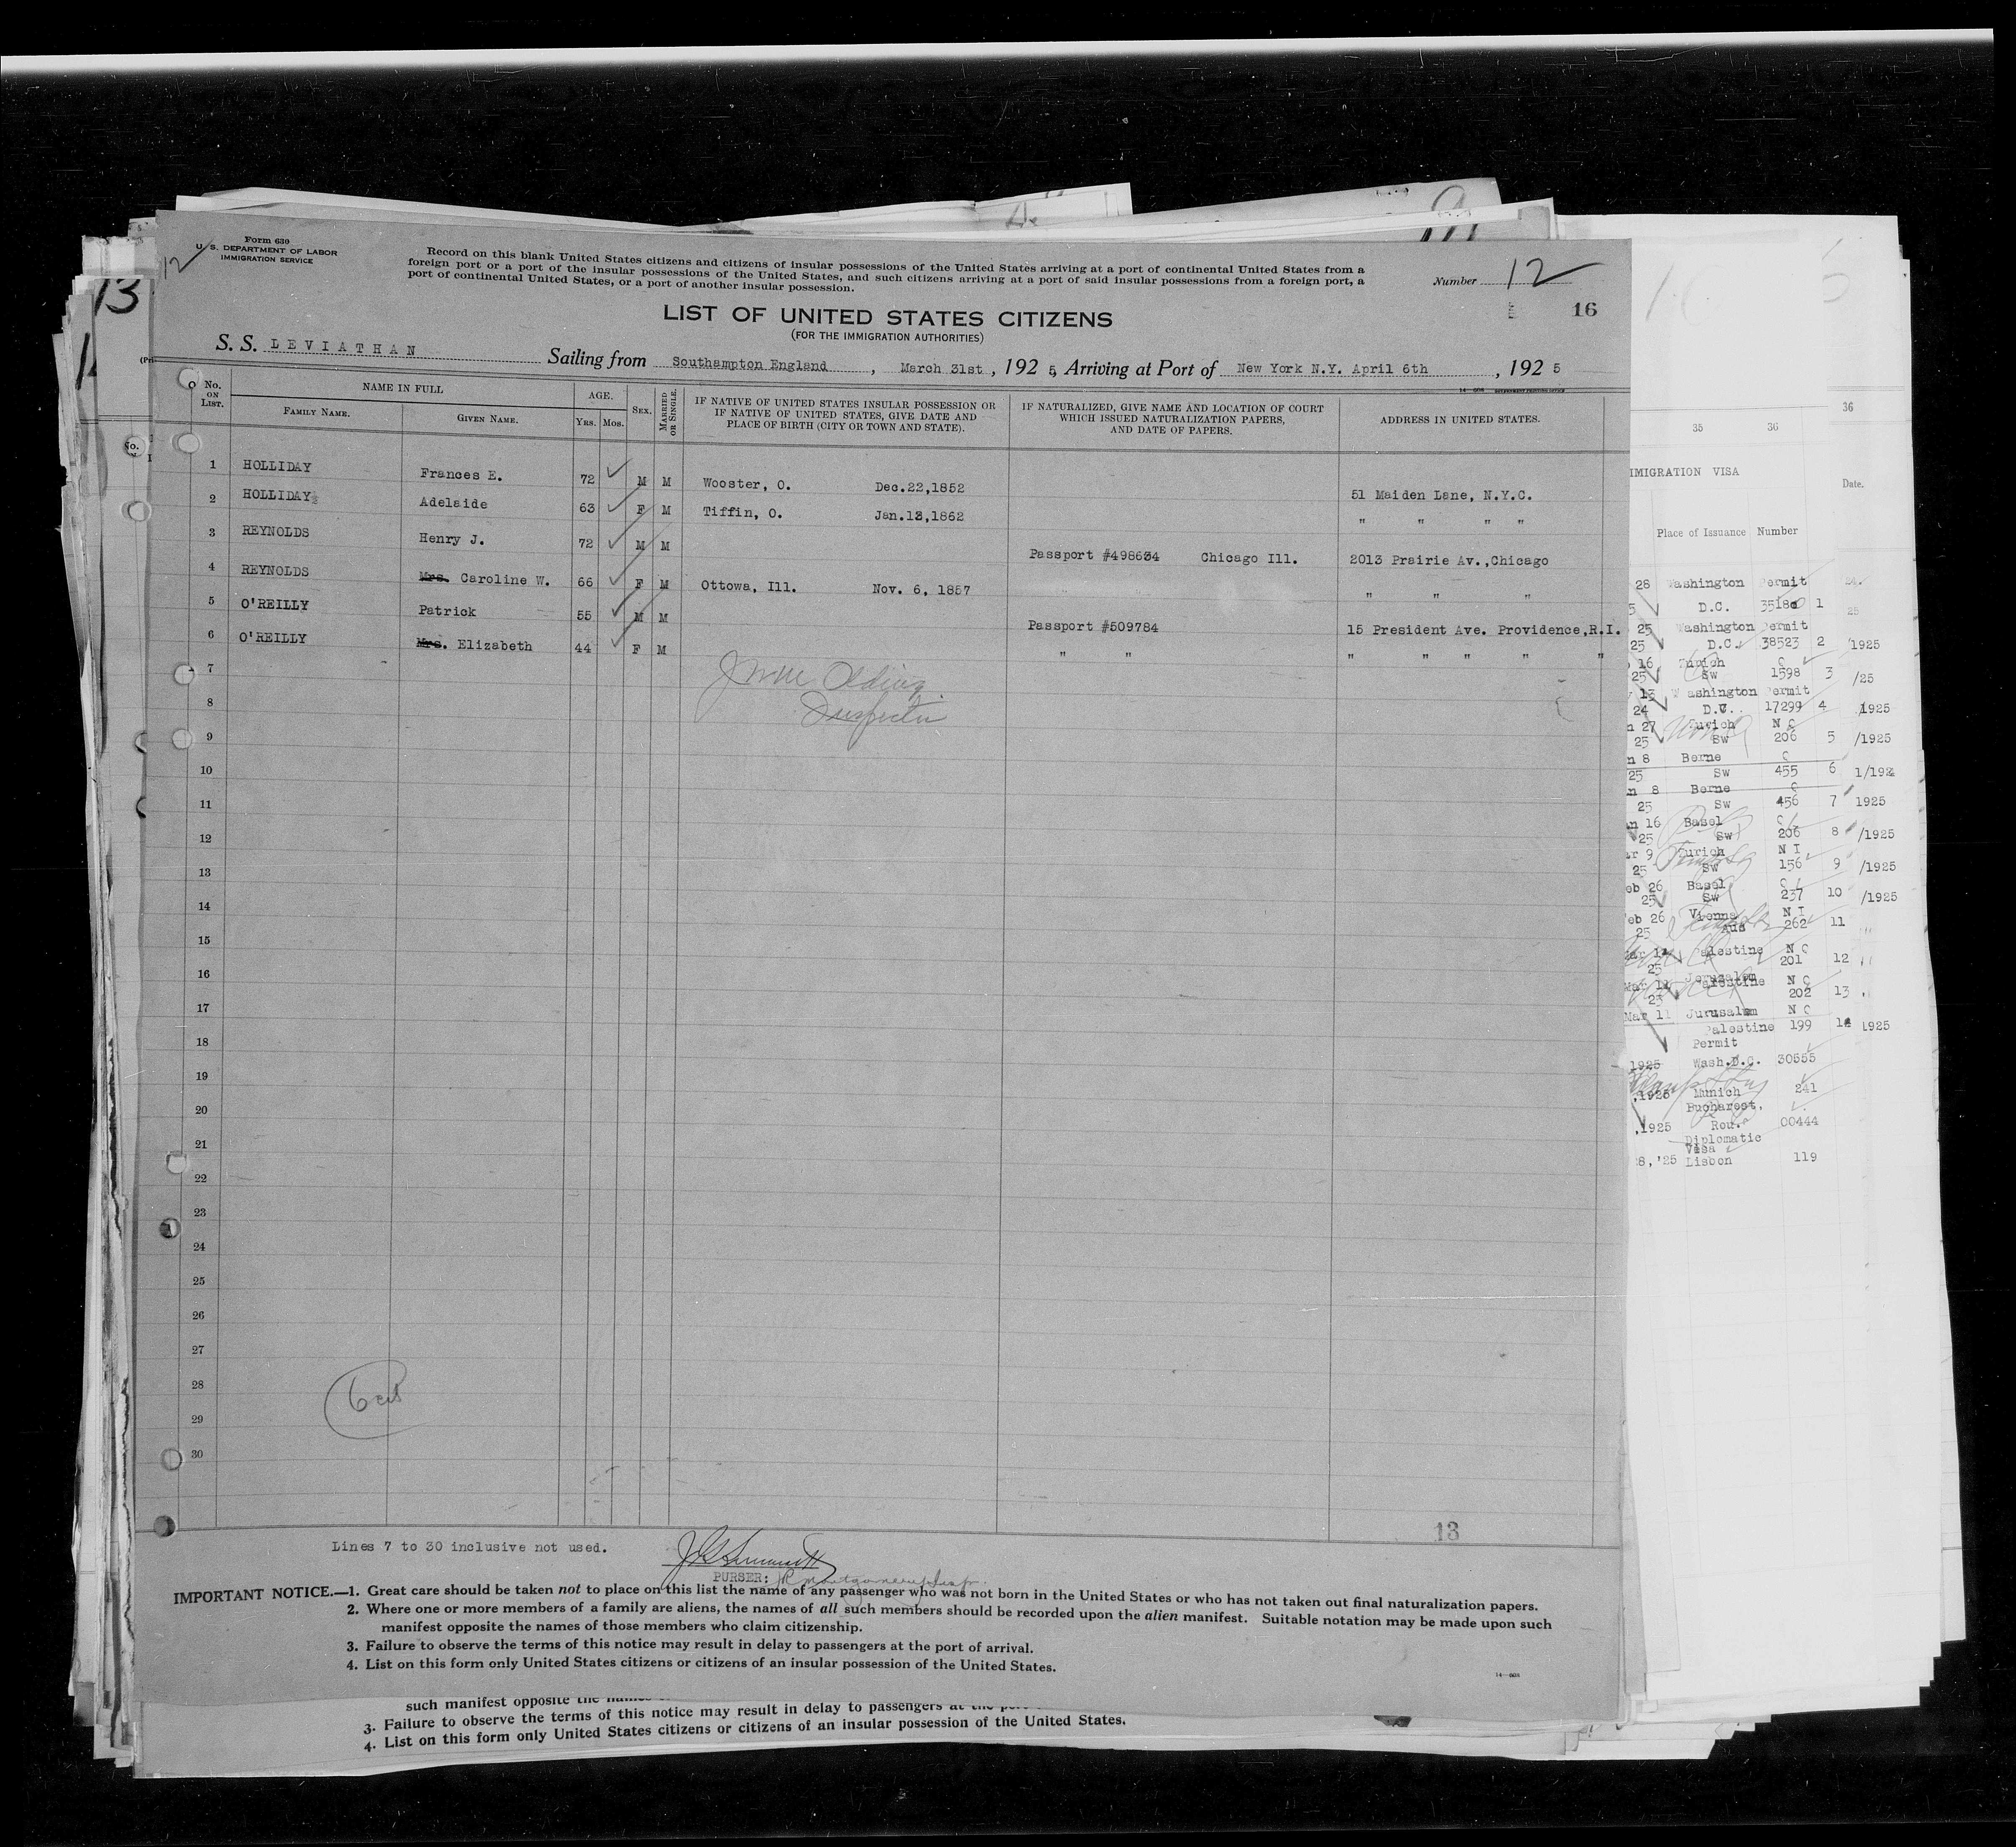 Form 630
U. S. DEPARTMENT OF LABOR
IMMIGRATION SERVICE
12
Record on this blank United States citizens and citizens of insular possessions of the United States arriving at a port of continental United States from a
foreign port or a port of the insular possessions of the United States, and such citizens arriving at a port of said insular possessions from a foreign port, a
port of continental United States, or a port of another insular possession.
Number 12
16
LIST OF UNITED STATES CITIZENS
(FOR THE IMMIGRATION AUTHORITIES)
S. S. LEVIATHAN Sailing from Southampton England, March 31st, 192 5, Arriving at Port of New York N.Y. April 6th, 192 5
No. ON LIST. NAME IN FULL FAMILY NAME. GIVEN NAME. AGE. YRS. MOS. SEX. MARRIED OR SINGLE. IF NATIVE OF UNITED STATES INSULAR POSSESSION OR IF NATIVE OF UNITED STATES, GIVE DATE AND PLACE OF BIRTH (CITY OR TOWN AND STATE). IF NATURALIZED, GIVE NAME AND LOCATION OF COURT WHICH ISSUED NATURALIZATION PAPERS, AND DATE OF PAPERS. ADDRESS IN UNITED STATES.
1 HOLLIDAY Frances E. 72 M M Wooster, O. Dec.22,1852 51 Maiden Lane, N.Y.C.
2 HOLLIDAY Adelaide 63 F M Tiffin, O. Jan.13,1862 " " " "
3 REYNOLDS Henry J. 72 M M Passport #498634 Chicago Ill. 2013 Prairie Av.,Chicago
4 REYNOLDS Mrs. Caroline W. 66 F M Ottowa, Ill. Nov. 6, 1857 " " "
5 O'REILLY Patrick 55 M M Passport #509784 15 President Ave. Providence,R.I.
6 O'REILLY Mrs. Elizabeth 44 F M " " " " " " "
7
Inspector
8
9
10
11
12
13
14
15
16
17
18
19
20
21
22
23
24
25
26
27
28
29
30
6 cit
13
Lines 7 to 30 inclusive not used.
PURSER:
IMPORTANT NOTICE.—1. Great care should be taken not to place on this list the name of any passenger who was not born in the United States or who has not taken out final naturalization papers.
2. Where one or more members of a family are aliens, the names of all such members should be recorded upon the alien manifest. Suitable notation may be made upon such
manifest opposite the names of those members who claim citizenship.
3. Failure to observe the terms of this notice may result in delay to passengers at the port of arrival.
4. List on this form only United States citizens or citizens of an insular possession of the United States.
such manifest opposite the
3. Failure to observe the terms of this notice may result in delay to passengers at the
4. List on this form only United States citizens or citizens of an insular possession of the United States.
13
36
35 36
IMIGRATION VISA
Date.
Place of Issuance Number
28 Washington Permit
D.C. 1
25 Washington Permit
25 D.C. 38523 2 /1925
16 Zurich Q
25 Sw 1598 3 /25
13 Washington Permit
24 D.C. 17299 4 1925
27 Zurich N Q
25 Sw 206 5 /1925
8 Berne Q
25 Sw 455 6
8 Berne Q
25 Sw 456 7 1925
16 Basel Q
25 Sw 206 8 /1925
9 Zurich N I
25 Sw 156 9 /1925
eb 26 Basel Q
25 Sw 237 10 /1925
eb 26 Vienna N I
25 Aus 262 11
Palestine N Q
25 Jerusalem 201 12
Mar 11 Palestine N Q
25 202 13
Mar 11 Jurusalem N Q
Palestine 199 14 1925
Permit
1925 Wash.D.C. 30555
,1925 Munich 241
Bucharest,
,1925 Rou. 00444
Diplomatic
Visa
8,'25 Lisbon 119